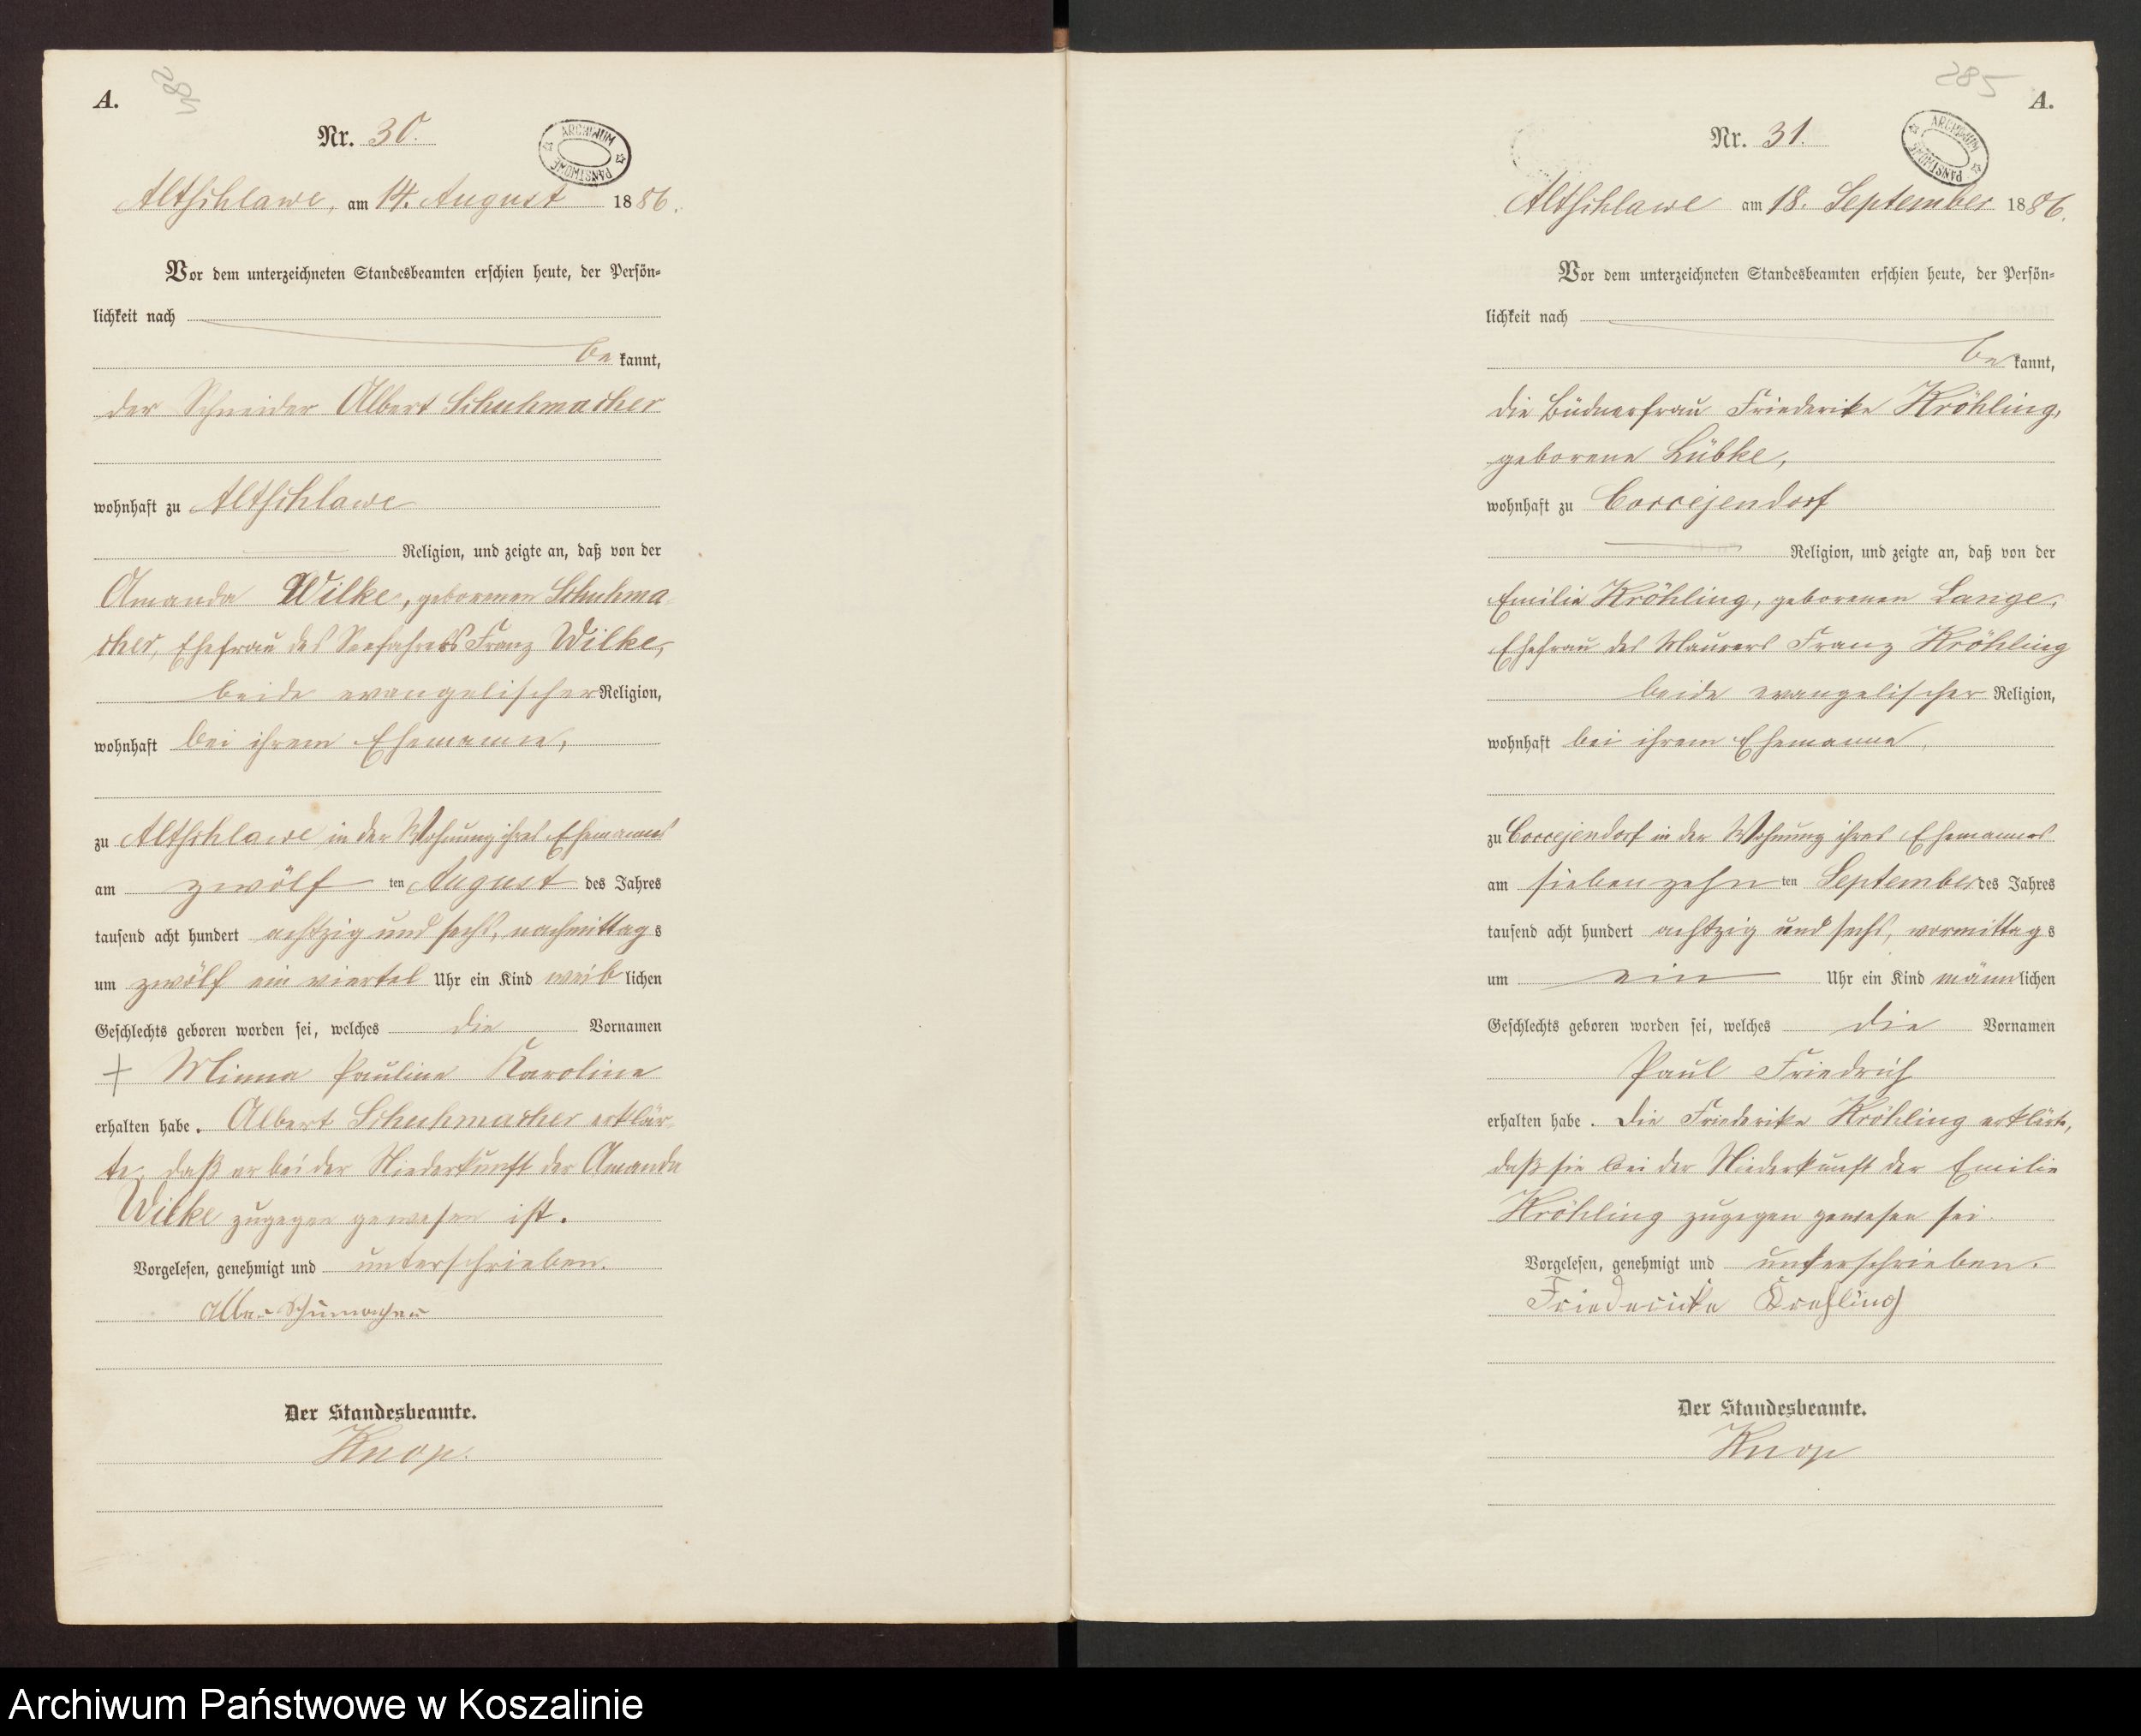 A.
284
Nr. 30.
ARCHIWUM PAŃSTWOWE
Altschlawe, am 14. August 1886.
Vor dem unterzeichneten Standesbeamten erschien heute, der Persön-
lichkeit nach
be kannt,
der Schneider Albert Schuhmacher
wohnhaft zu Altschlawe
Religion, und zeigte an, daß von der
Amanda Wilke, geborenen Schuhma
cher, Ehefrau des Seefahrers Franz Wilke,
beide evangelischer Religion,
wohnhaft bei ihrem Ehemanne,
zu Altschlawe in der Wohnung ihres Ehemannes
am zwölf ten August des Jahres
tausend acht hundert achtzig und sechs, nachmittag s
um zwölf ein viertel Uhr ein Kind weib lichen
Geschlechts geboren worden sei, welches die Vornamen
+ Minna Pauline Karoline
erhalten habe. Albert Schuhmacher erklär-
te, daß er bei der Niederkunft der Amanda
Wilke zugegen gewesen ist.
Vorgelesen, genehmigt und unterschrieben.
Schumacher
Der Standesbeamte.
Knop.
285
A.
Nr. 31.
ARCHIWUM PAŃSTWOWE
Altschlawe am 18. September 1886.
Vor dem unterzeichneten Standesbeamten erschien heute, der Persön-
lichkeit nach
be kannt,
die Büdnerfrau Friederike Kröhling,
geborene Lübke,
wohnhaft zu Coccejendorf
Religion, und zeigte an, daß von der
Emilie Kröhling, geborenen Lange,
Ehefrau des Maurers Franz Kröhling
beide evangelischer Religion,
wohnhaft bei ihrem Ehemanne,
zu Coccejendorf in der Wohnung ihres Ehemannes
am siebenzehn ten September des Jahres
tausend acht hundert achtzig und sechs, vormittag s
um ein Uhr ein Kind männ lichen
Geschlechts geboren worden sei, welches die Vornamen
Paul Friedrich
erhalten habe. Die Friederike Kröhling erklärte,
daß sie bei der Niederkunft der Emilie
Kröhling zugegen gewesen sei.
Vorgelesen, genehmigt und unterschrieben.
Friedericke Krehling
Der Standesbeamte.
Knop
Archiwum Państwowe w Koszalinie